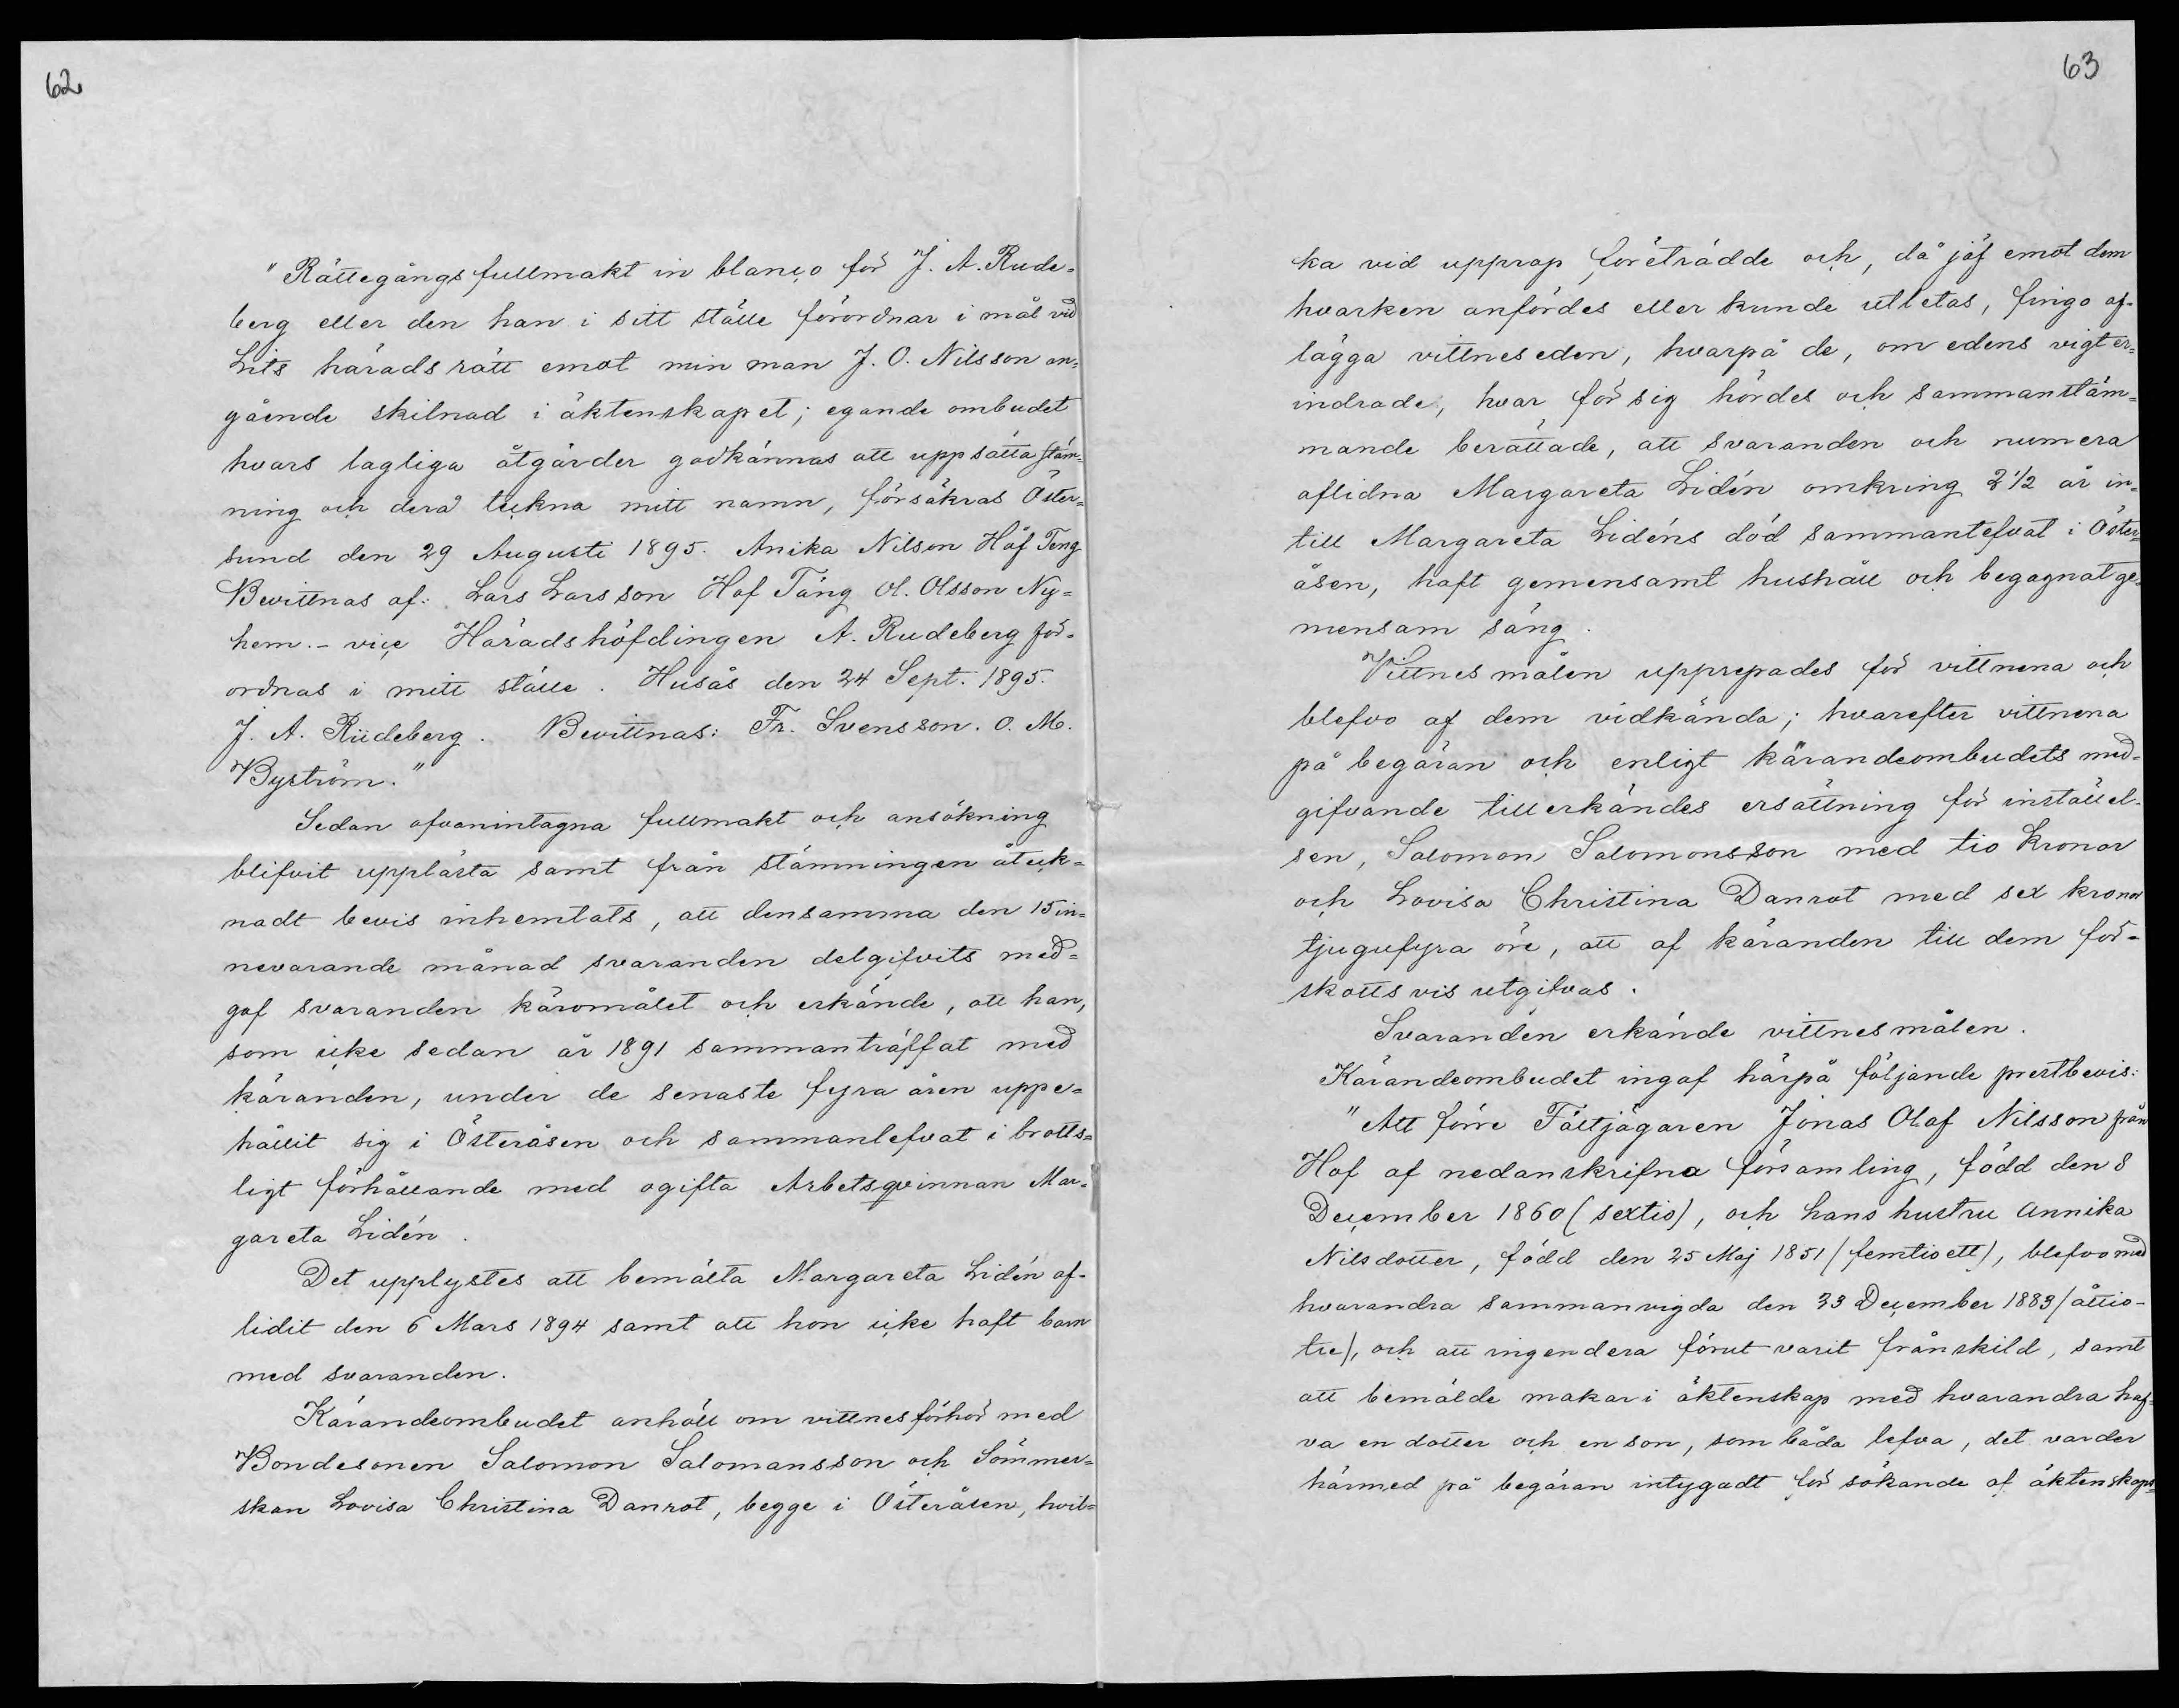 62
"Rättegångsfullmakt in blanco för J. A. Rude=
berg eller den han i sitt ställe förordnar i mål vid
Lits häradsrätt emot min man J. O. Nilsson an=
gående skilnad i äktenskapet; egande ombudet
hvars lagliga åtgärder godkännas att uppsätta stäm=
ning och derå teckna mitt namn, försäkras Öster=
sund den 29 Augusti 1895. Anika Nilson Håf Teng
Bevittnas af: Lars Larsson Hof Täng Ol. Olsson Ny=
hem. - vice Häradshöfdingen A. Rudeberg för=
ordnas i mitt ställe. Husås den 24 Sept. 1895.
J. A. Rudeberg. Bevittnas: Fr. Svensson. O. M.
Byström."
Sedan ofvanintagna fullmakt och ansökning
blifvit upplästa samt från stämningen åteck=
nadt bevis inhemtats, att densamma den 15 in=
nevarande månad svaranden delgifvits med=
gaf svaranden käromålet och erkände, att han,
som icke sedan år 1891 sammanträffat med
käranden, under de senaste fyra åren uppe=
hållit sig i Österåsen och sammanlefvat i brotts=
ligt förhållande med ogifta Arbetsqvinnan Mar=
gareta Lidén.
Det upplystes att bemälta Margareta Lidén af-
lidit den 6 Mars 1894 samt att hon icke haft barn
med svaranden.
Kärandeombudet anhöll om vittnesförhör med
Bondesonen Salomon Salomansson och Sömmer=
skan Lovisa Christina Danrot, begge i Österåsen, hvil=
63
ka vid upprop företrädde och, då jäf emot dem
hvarken anfördes eller kunde utletas, fingo af=
lägga vittneseden, hvarpå de, om edens vigt er=
indrade, hvar för sig hördes och sammanstäm=
mande berättade, att svaranden och numera
aflidna Margareta Lidén omkring 2 1/2 år in=
till Margareta Lidéns död sammanlefvat i Öster=
åsen, haft gemensamt hushåll och begagnat ge=
mensam säng.
Vittnesmålen upprepades för vittnena och
blefvo af dem vidkända; hvarefter vittnena
på begäran och enligt kärandeombudets med=
gifvande tillerkändes ersättning för inställel=
sen, Salomon Salomonsson med tio kronor
och Lovisa Christina Danrot med sex kronor
tjugufyra öre, att af käranden till dem för=
skotts vis utgifvas.
Svaranden erkände vittnesmålen.
Kärandeombudet ingaf härpå följande prestbevis:
"Att förre Fältjägaren Jonas Olof Nilsson från
Hof af nedanskrifna församling, född den 8
December 1860 (sextio), och hans hustru Annika
Nilsdotter, född den 25 Maj 1851 (femtioett), blefvo med
hvarandra sammanvigda den 23 December 1883 (åttio-
tre), och att ingendera förut varit frånskild, samt
att bemälde makar i äktenskap med hvarandra haf=
va en dotter och en son, som båda lefva, det varder
härmed på begäran intygadt för sökande af äktenskaps=